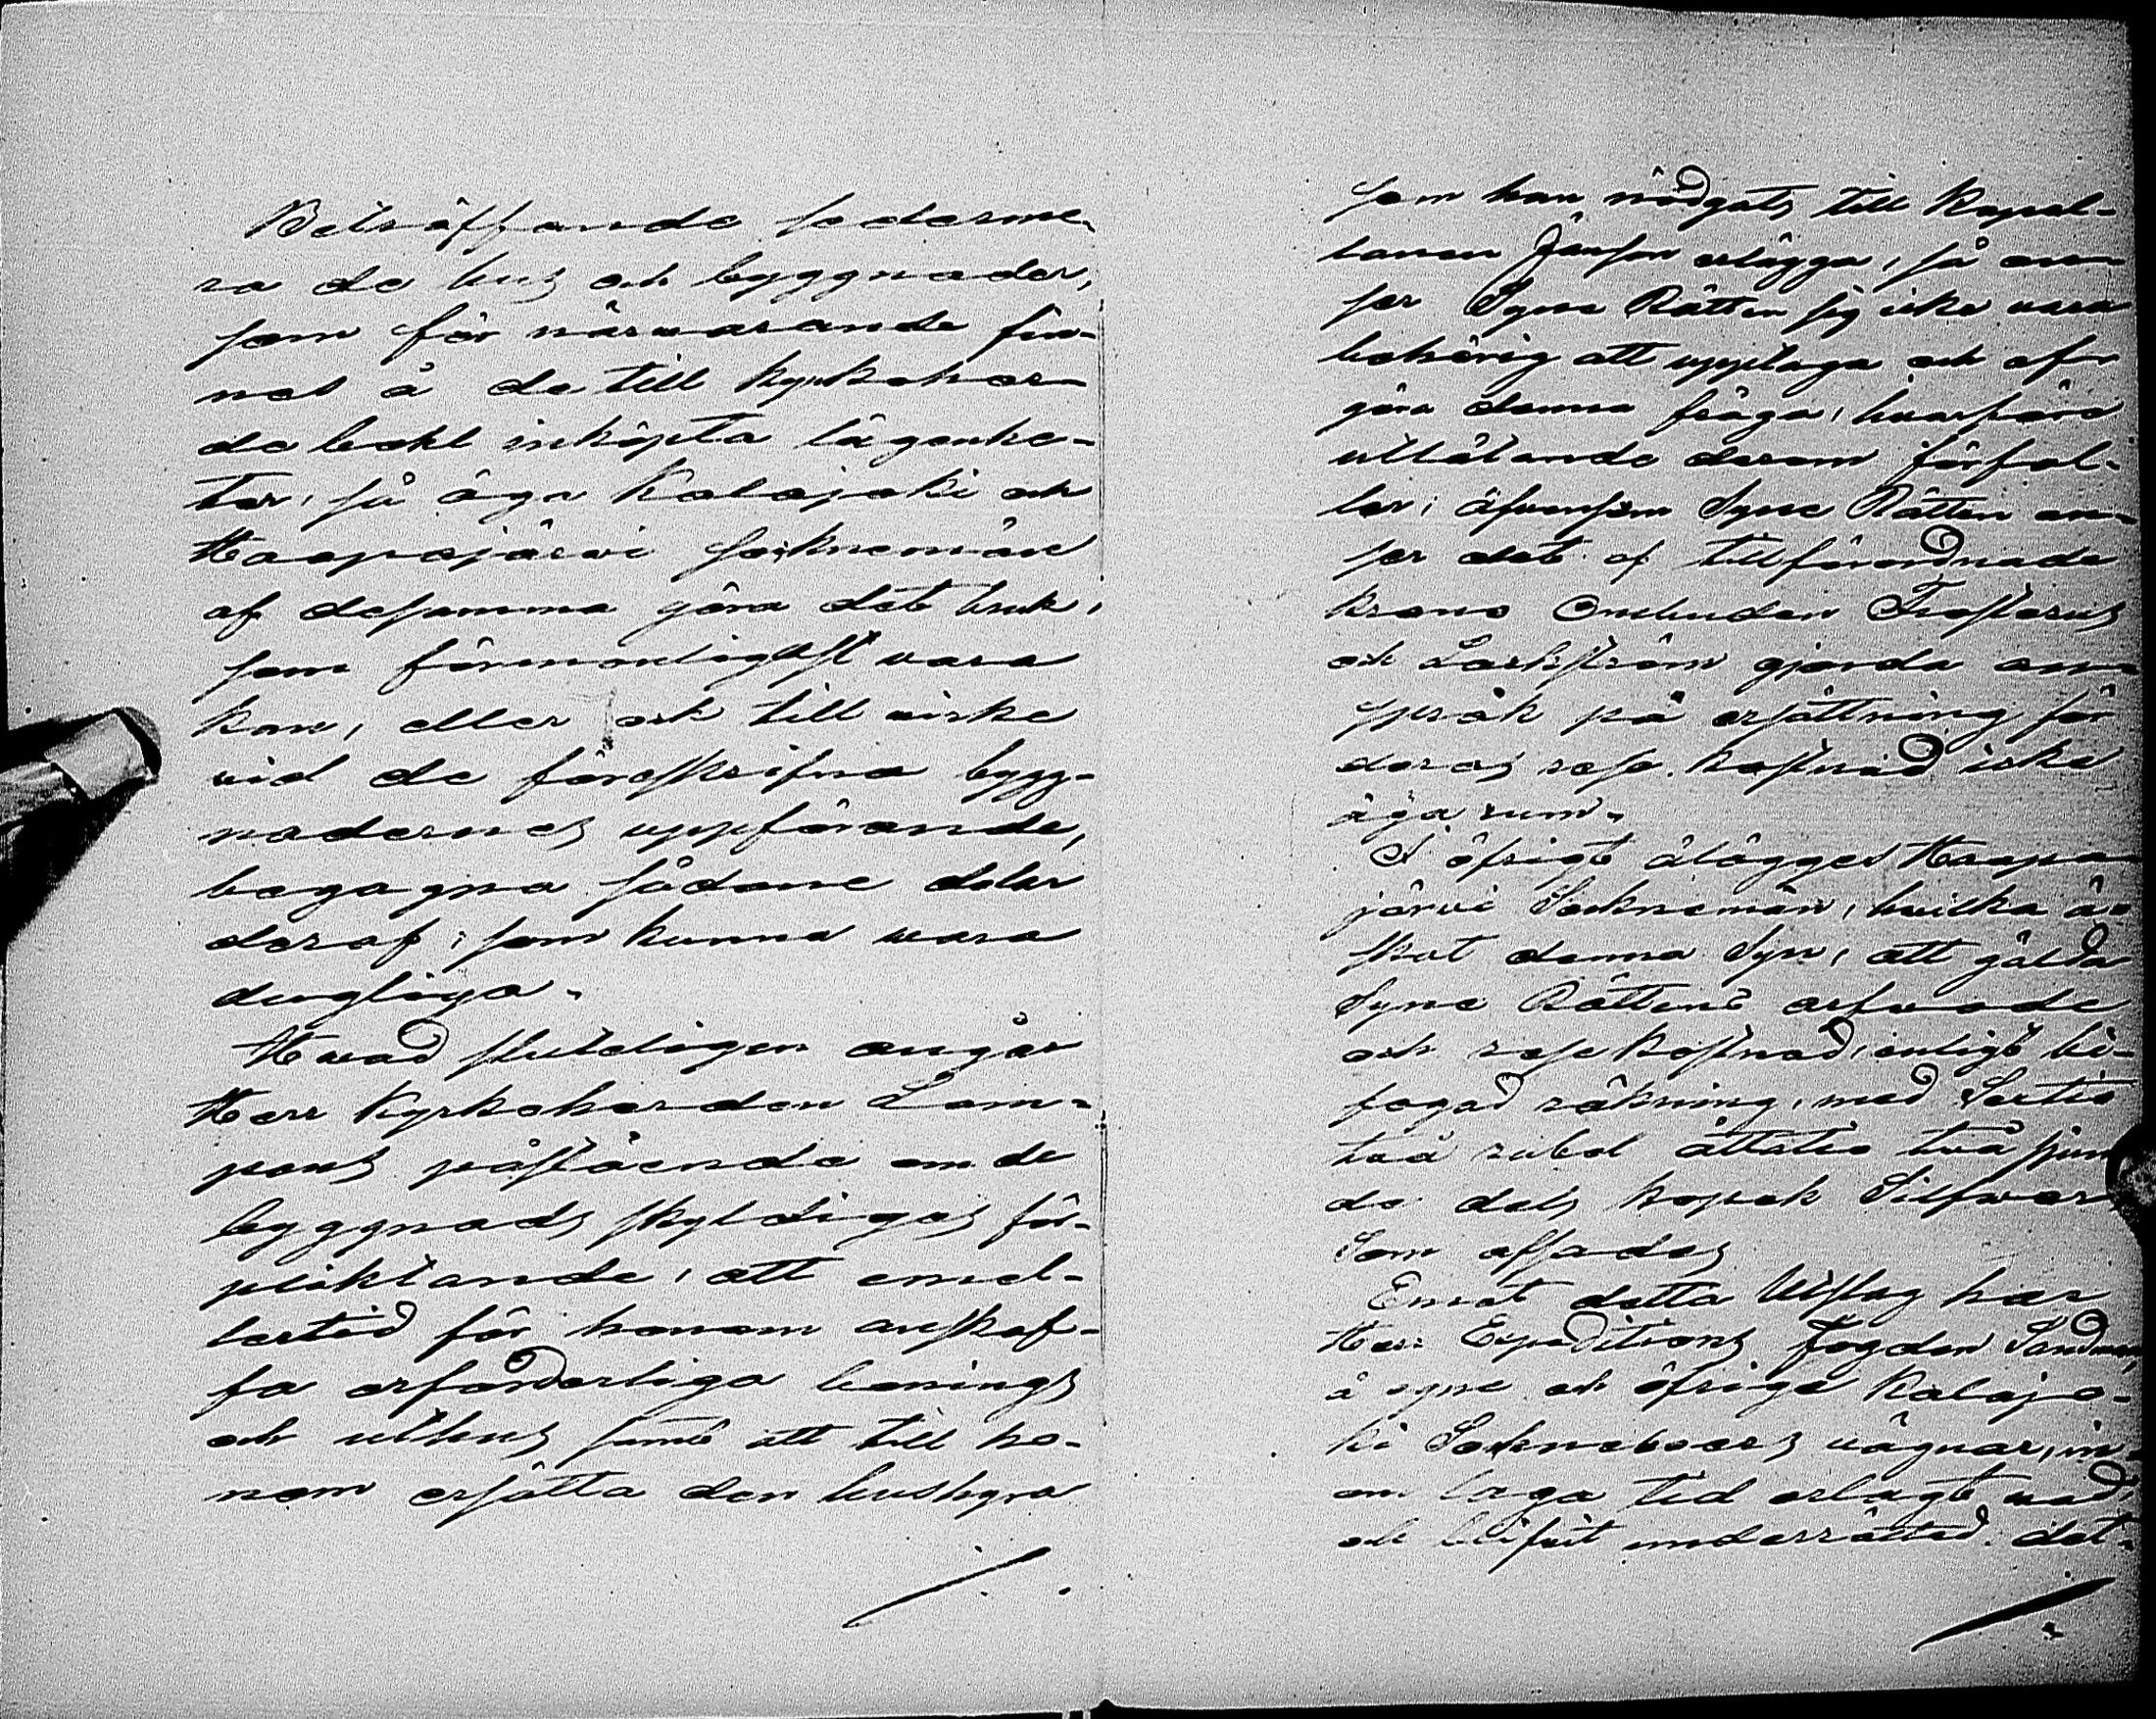 Beträffande sederme-
ra de hus och byggnader,
som för närwarande fin-
nas å de till kyrkoher-
de bohl inköpta lägenhe-
ter, så äga Kalajoki och
Haapajärwi Soknemän
af desamma göra det bruk,
som förmonligast wara
kan, eller ock till wirke
wid de föreskrifna bygg-
nadernes uppförande,
begagna sådane delar
deraf, som kunna wara
dugliga.
Hwad sluteligen angår
Herr Kyrkoherden Lam-
pens påstående om de
byggnads skyldigas för-
pliktande, att emel-
lertid för honom anskaf-
fa erforderliga bonings
och uthus samt att till ho-
nom ersätta den hushyra
som han nödgats till Kapel-
lanen Janson erlägga, så an-
ser Syne Rätten sig icke wara
behörig att upptaga och af-
göra denna fråga, hwarföre
utlåtande derom förfal-
ler; äfwensom Syne Rätten an-
ser det af tillförordnade
krono Ombuden
och gjorda an-
språk på ersättning för
deras rese kostnad icke
äga rum.
I öfrigt ålägges Haapa-
järwi Soknemän, hwilka ä-
skat denna Syn, att gälda
Syne Rättens arfwode
och rese kostnad, enligt bi-
fogad räkning, med Sextio
två rubel åttatio två sjun-
de dels kopek Silfwer
Som afsades
Emot detta Utslag har
Herr Expeditions fogden Sandman
å egne och öfrige Kalajo-
ki Sokneboers wägnar, in-
om laga tid erlagt wad,
och blifwit underrättad. det-